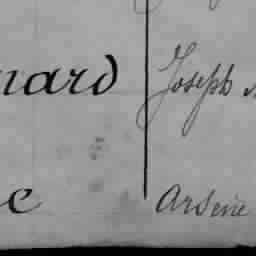 nard Joseph
e Arsène